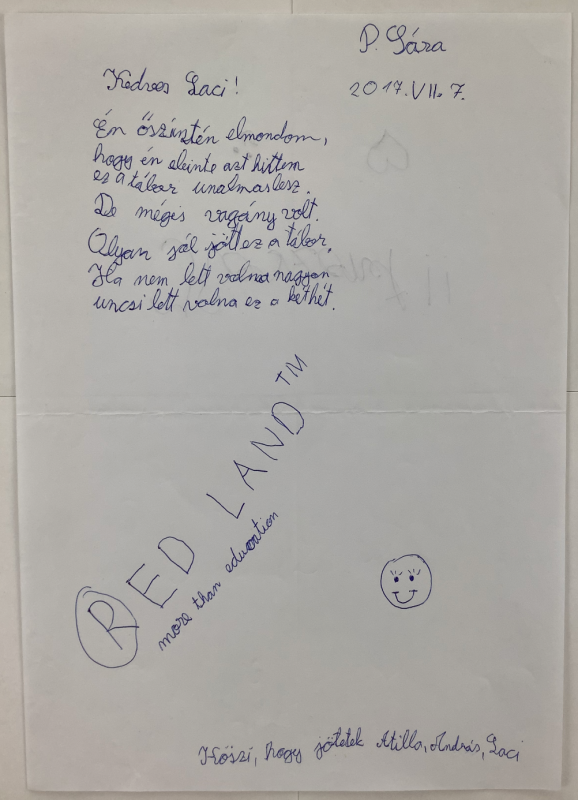 P. Sára
Kedves Laci!
2017.VII.7.
Én őszintén elmondom,
hogy én eleinte azt hittem
ez a tábor unalmas lesz.
De mégis vagány volt.
Olyan jól jött ez a tábor.
Ha nem lett volna nagyon
uncsi lett volna ez a két hét.
RED LAND™
more than education
Köszi, hogy jötetek Atilla, András, Laci